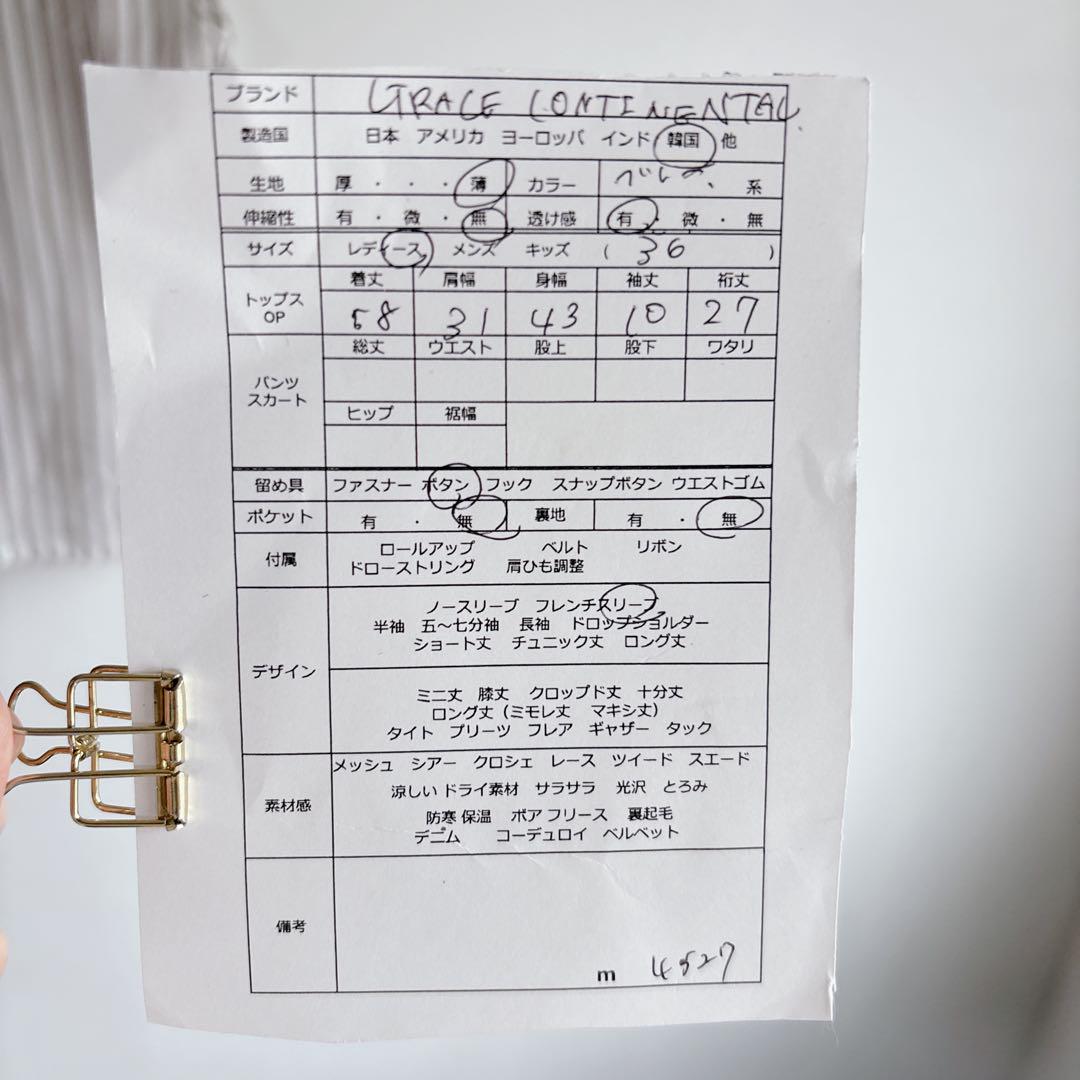 ブランド GRACE CONTINENTAL
製造国 日本 アメリカ ヨーロッパ インド 韓国 他
生地 厚・・・薄 カラー ベレー、系
伸縮性 有・微・無 透け感 有・微・無
サイズ レディース メンズ キッズ ( 36 )
トップス OP 着丈 肩幅 身幅 袖丈 裄丈
58 31 43 10 27
パンツ スカート 総丈 ウエスト 股上 股下 ワタリ
ヒップ 裾幅
留め具 ファスナー ボタン フック スナップボタン ウエストゴム
ポケット 有・無 裏地 有・無
付属 ロールアップ ベルト リボン
ドローストリング 肩ひも調整
デザイン ノースリーブ フレンチスリーブ
半袖 五〜七分袖 長袖 ドロップショルダー
ショート丈 チュニック丈 ロング丈
ミニ丈 膝丈 クロップド丈 十分丈
ロング丈（ミモレ丈 マキシ丈）
タイト プリーツ フレア ギャザー タック
素材感 メッシュ シアー クロシェ レース ツイード スエード
涼しい ドライ素材 サラサラ 光沢 とろみ
防寒 保温 ボア フリース 裏起毛
デニム コーデュロイ ベルベット
備考
m 4527